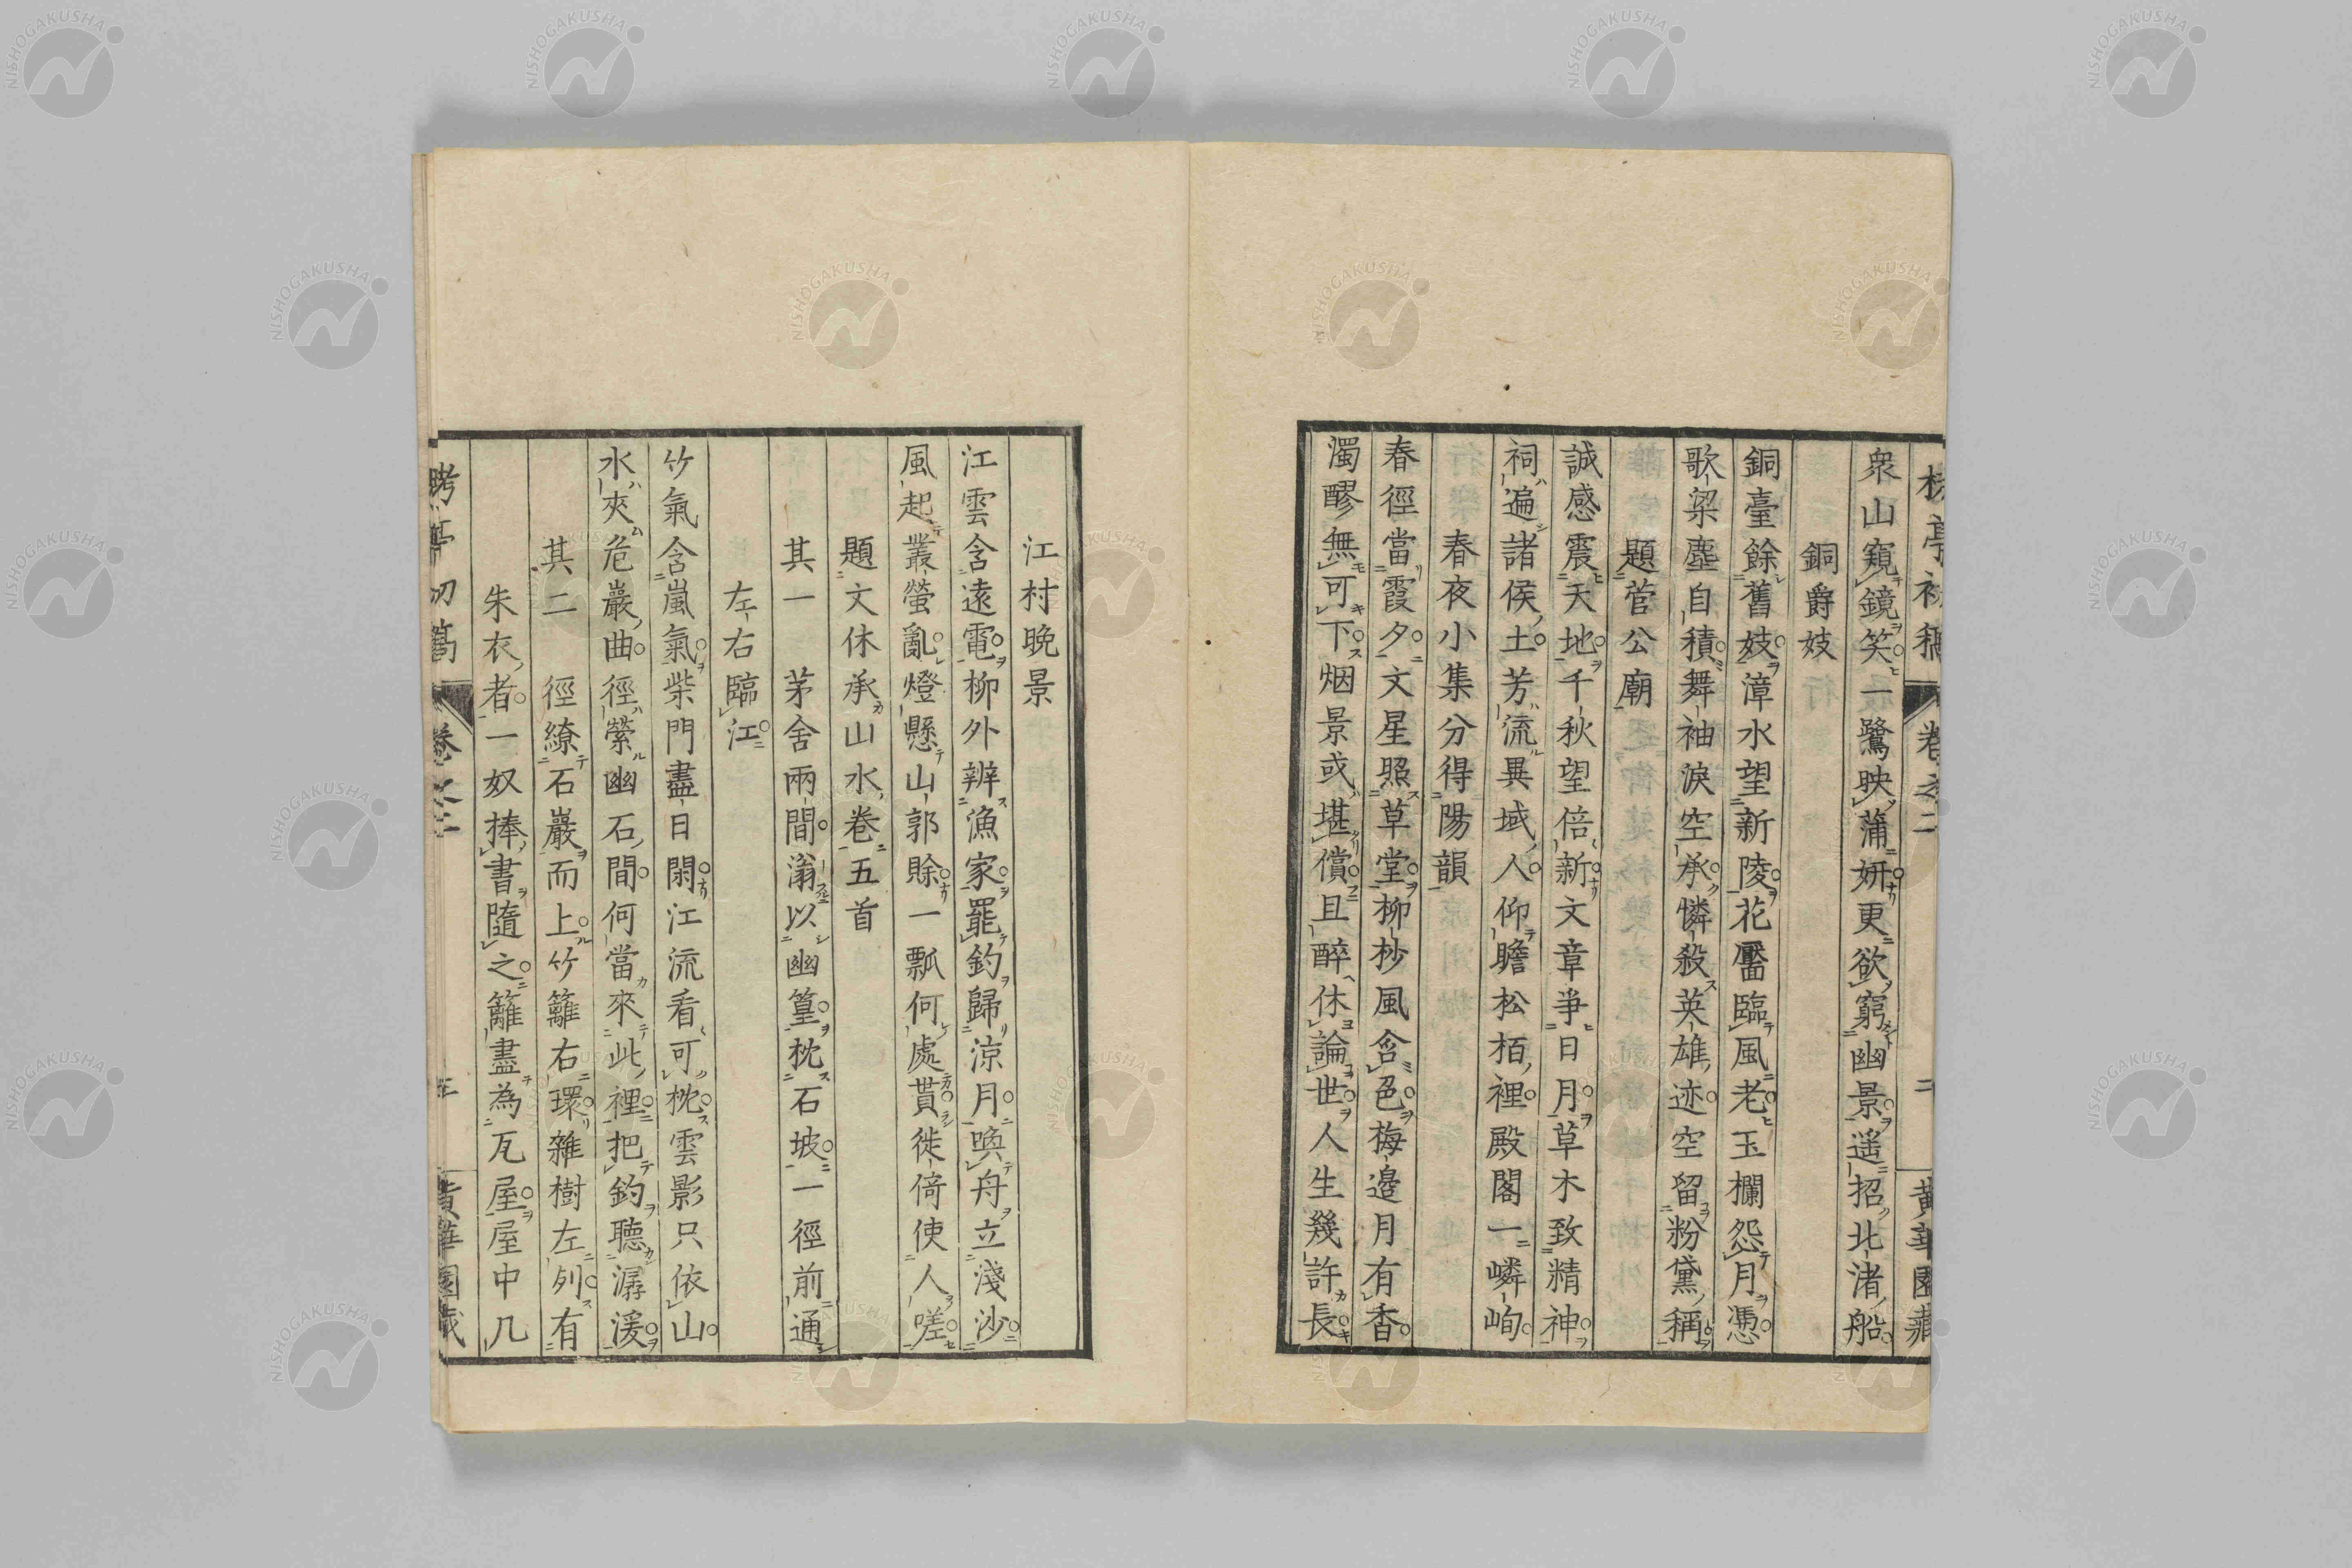 衆山窺鏡笑一鷺映蒲妍更欲窮幽景遥招北渚船
銅爵妓
銅臺餘舊妓漳水望新陵花靨臨風老玉欄怨月憑
歌梁塵自積舞袖淚空承憐殺英雄迹空留粉黛稱
題菅公廟
誠感震天地千秋望倍新文章爭日月草木致精神
祠遍諸侯土芳流異域人仰瞻松栢裡殿閣一嶙峋
春夜小集分得陽韻
春徑當霞夕文星照草堂柳杪風含色梅邉月有香
濁醪無可下烟景或堪償且醉休論世人生幾許長
江村晩景
江雲含遠電柳外辨漁家罷釣歸涼月喚舟立淺沙
風起叢螢亂燈懸山郭賖一瓢何處貰徙倚使人嗟
題文休承山水卷五首
其一　茅舍兩間滃以幽篁枕石坡一徑前通
左右臨江
竹氣含嵐氣柴門盡日閑江流看可枕雲影只依山
水夾危巖曲徑縈幽石間何當來此裡把釣聽潺湲
其二　徑繚石巖而上竹籬右環雜樹左列有
朱衣者一奴捧書隨之籬盡為瓦屋屋中几
卷之二
黄華園藏